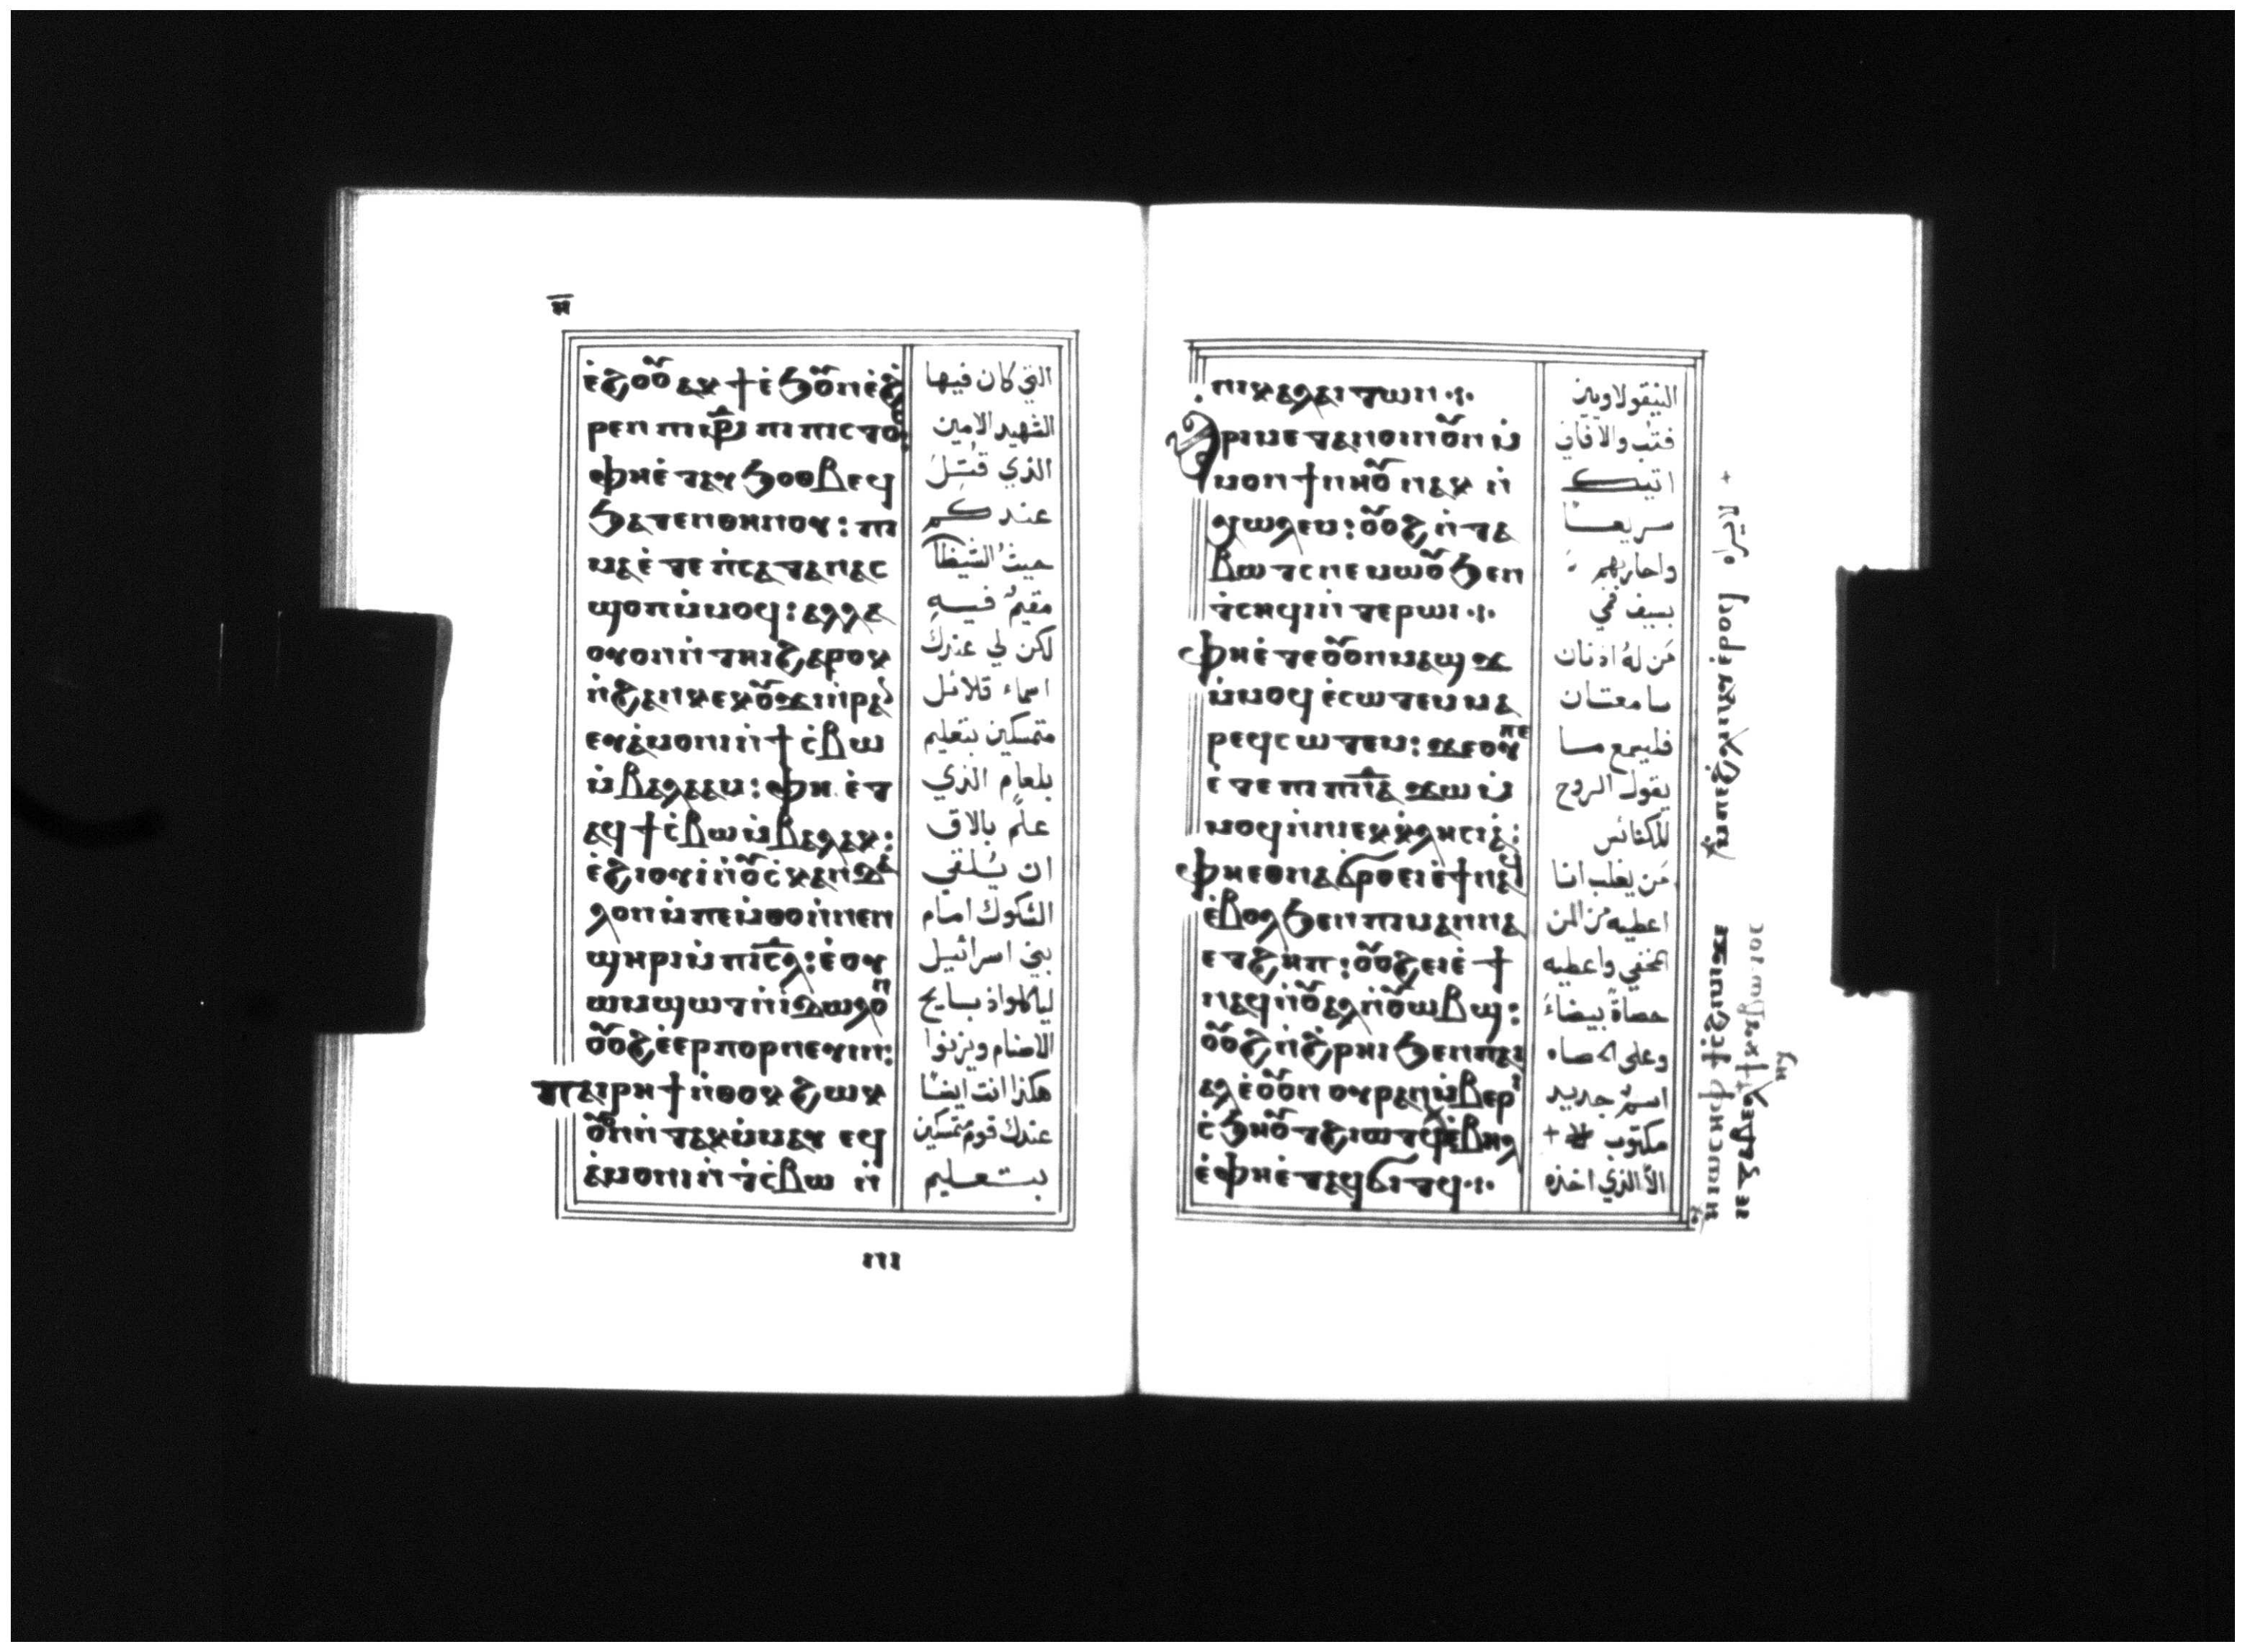 ⲏ̅
ⲉ̀ϩⲟⲟⲩ ⲁⲕϯ ⲉ̀ϧⲟⲩⲛ ⲉ̀ϩ
ⲣⲉⲛ ⲡⲓⲙⲣ̅ ⲡⲓⲡⲓⲥⲧⲟⲥ
ⲫⲏⲉ̀ⲧⲁⲩϧⲟⲑⲃⲉϥ
ϧⲁⲧⲉⲛⲑⲏⲛⲟⲩ: ⲡⲓ
ⲙⲁ ⲉ̀ⲧⲉ ⲡ̀ⲥⲁⲧⲁⲛⲁⲥ
ϣⲟⲡ ⲙ̀ⲙⲟϥ: ⲁⲗⲗⲁ
ⲟⲩⲟⲛ ⲛ̀ⲧⲏⲓ ϩⲁⲣⲟⲕ
ⲛ̀ϩⲁⲛⲕⲉⲕⲟⲩϫⲓ ⲛ̀ⲣⲁⲛ
ⲉⲩⲁ̀ⲙⲟⲛⲓ ⲛ̀ϯⲥ̀ⲃⲱ
ⲙ̀ⲃⲁⲗⲁⲁⲙ: ⲫⲏⲉ̀ⲧ
ⲁϥϯⲥ̀ⲃⲱ ⲙ̀ⲃⲁⲗⲁⲕ:
ⲉ̀ϩⲓⲟⲩⲓ̀ ⲛ̀ⲟⲩⲥ̀ⲕⲁⲛⲇⲁ
ⲗⲟⲛ ⲙ̀ⲡⲉⲙ̀ⲑⲟ ⲛ̀ⲛⲉⲛ
ϣⲏⲣⲓ ⲙ̀ⲡⲓⲥ̅ⲗ: ⲉ̀ⲟⲩ
ⲱⲙ ⲙ̀ϣⲱⲧ ⲛ̀ⲓⲇⲱⲗⲟⲛ
ⲟⲩⲟϩ ⲉ̀ⲉⲣⲡⲟⲣⲛⲉⲩⲓⲛ:
ⲡⲁⲓⲣⲏϯ ⲛ̀ⲑⲟⲕ ϩⲱⲕ
ⲟⲩⲛ̀ⲧⲁⲕ ⲙ̀ⲙⲁⲩ ⲉϥ
ⲁ̀ⲙⲟⲛⲓ ⲛ̀ⲧⲥ̀ⲃⲱ ⲛ̀
التي كان فيها
الشهيد الامين
الذي قُتِلَ
عندكم
حيث الشيطا
مقيمٌ فيه
لكن لي عندك
اسماء قلائل
متمسكين بتعليم
بلعام الذي
علّم بالاق
ان يُلقي
الشكوك امام
بني اسرائيل
لياكلوا ذبايح
الاصنام ويزنوا
هكذا انت ايضًا
عندك قوم متمسكين
بتعليم
ⲛⲓ
ⲛⲓⲕⲟⲗⲁⲓⲧⲱⲛ
ⲁⲣⲓⲙⲉⲧⲁⲛⲟⲓⲛ ⲟⲩⲛ ⲙ̀
ⲙⲟⲛ ϯⲛⲏⲟⲩ ⲛⲁⲕ ⲛ̀
ⲭⲱⲗⲉⲙ: ⲟⲩⲟϩ ⲛ̀ⲧⲁ
ⲃⲱⲧⲥ ⲛⲉⲙⲱⲟⲩ ϧⲉⲛ
ⲧ̀ⲥⲏϥⲓ ⲛ̀ⲧⲉⲣⲱⲓ
ⲫⲏⲉ̀ⲧⲉ ⲟⲩⲟⲛ ⲙⲁϣϫ
ⲙ̀ⲙⲟϥ ⲉ̀ⲥⲱⲧⲉⲙ ⲙⲁ
ⲣⲉϥⲥⲱⲧⲉⲙ: ϫⲉⲟⲩⲡⲉ
ⲉ̀ⲧⲉ ⲡⲓⲡ̅ⲛ̅ⲁ̅ ϫⲱ ⲙ̀
ⲙⲟϥ ⲛ̀ⲛⲓⲉⲕⲕⲗⲏⲥⲓⲁ̀:
ⲫⲏⲉⲑⲛⲁϭⲣⲟ ⲉⲓⲉ̀ϯ ⲛⲁϥ
ⲉ̀ⲃⲟⲗ ϧⲉⲛ ⲡⲓⲙⲁⲛⲛⲁ
ⲉⲧϩⲏⲡ: ⲟⲩⲟϩ ⲉⲓⲉ̀ϯ
ⲛⲁϥ ⲛ̀ⲟⲩⲁⲗ ⲛ̀ⲟⲩⲱⲃϣ:
ⲟⲩⲟϩ ⲛ̀ϩ̀ⲣⲏⲓ ϧⲉⲛ ⲡⲓⲁ
ⲗ ⲉ̀ⲟⲩⲟⲛ ⲟⲩⲣⲁⲛ ⲙ̀ⲃⲉⲣⲓ
ⲥ̀ϧⲏⲟⲩⲧ ϩⲓⲱⲧϥ ⲉ̀ⲃⲏⲗ
ⲉ̀ⲫⲏⲉ̀ⲧⲁϥϭⲓⲧϥ
النيقولاويين
فتُب والا فاني
اتيك
سريعًا
واحاربهم
بسيف فمي
مَن له اذنان
سامعتان
فليسمع ما
يقول الروح
للكنائس
مَن يغلب انا
اعطيه من المن
المخفي واعطيه
حصاةً بيضاءَ
وعلى الحصاه
اسمٌ جديد
مكتوب
الا الذي اخذه